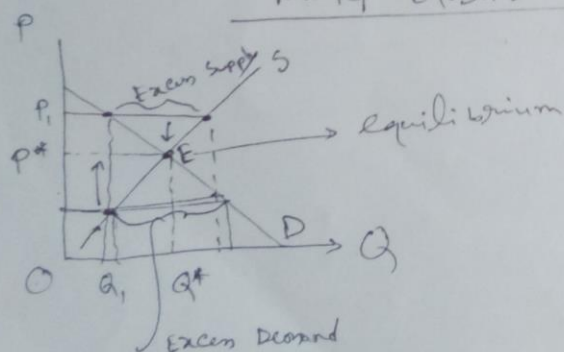 P
Excess Supply
S
P₁
P*
E
equilibrium
D
O
Q₁
Q*
Q
Excess Demand